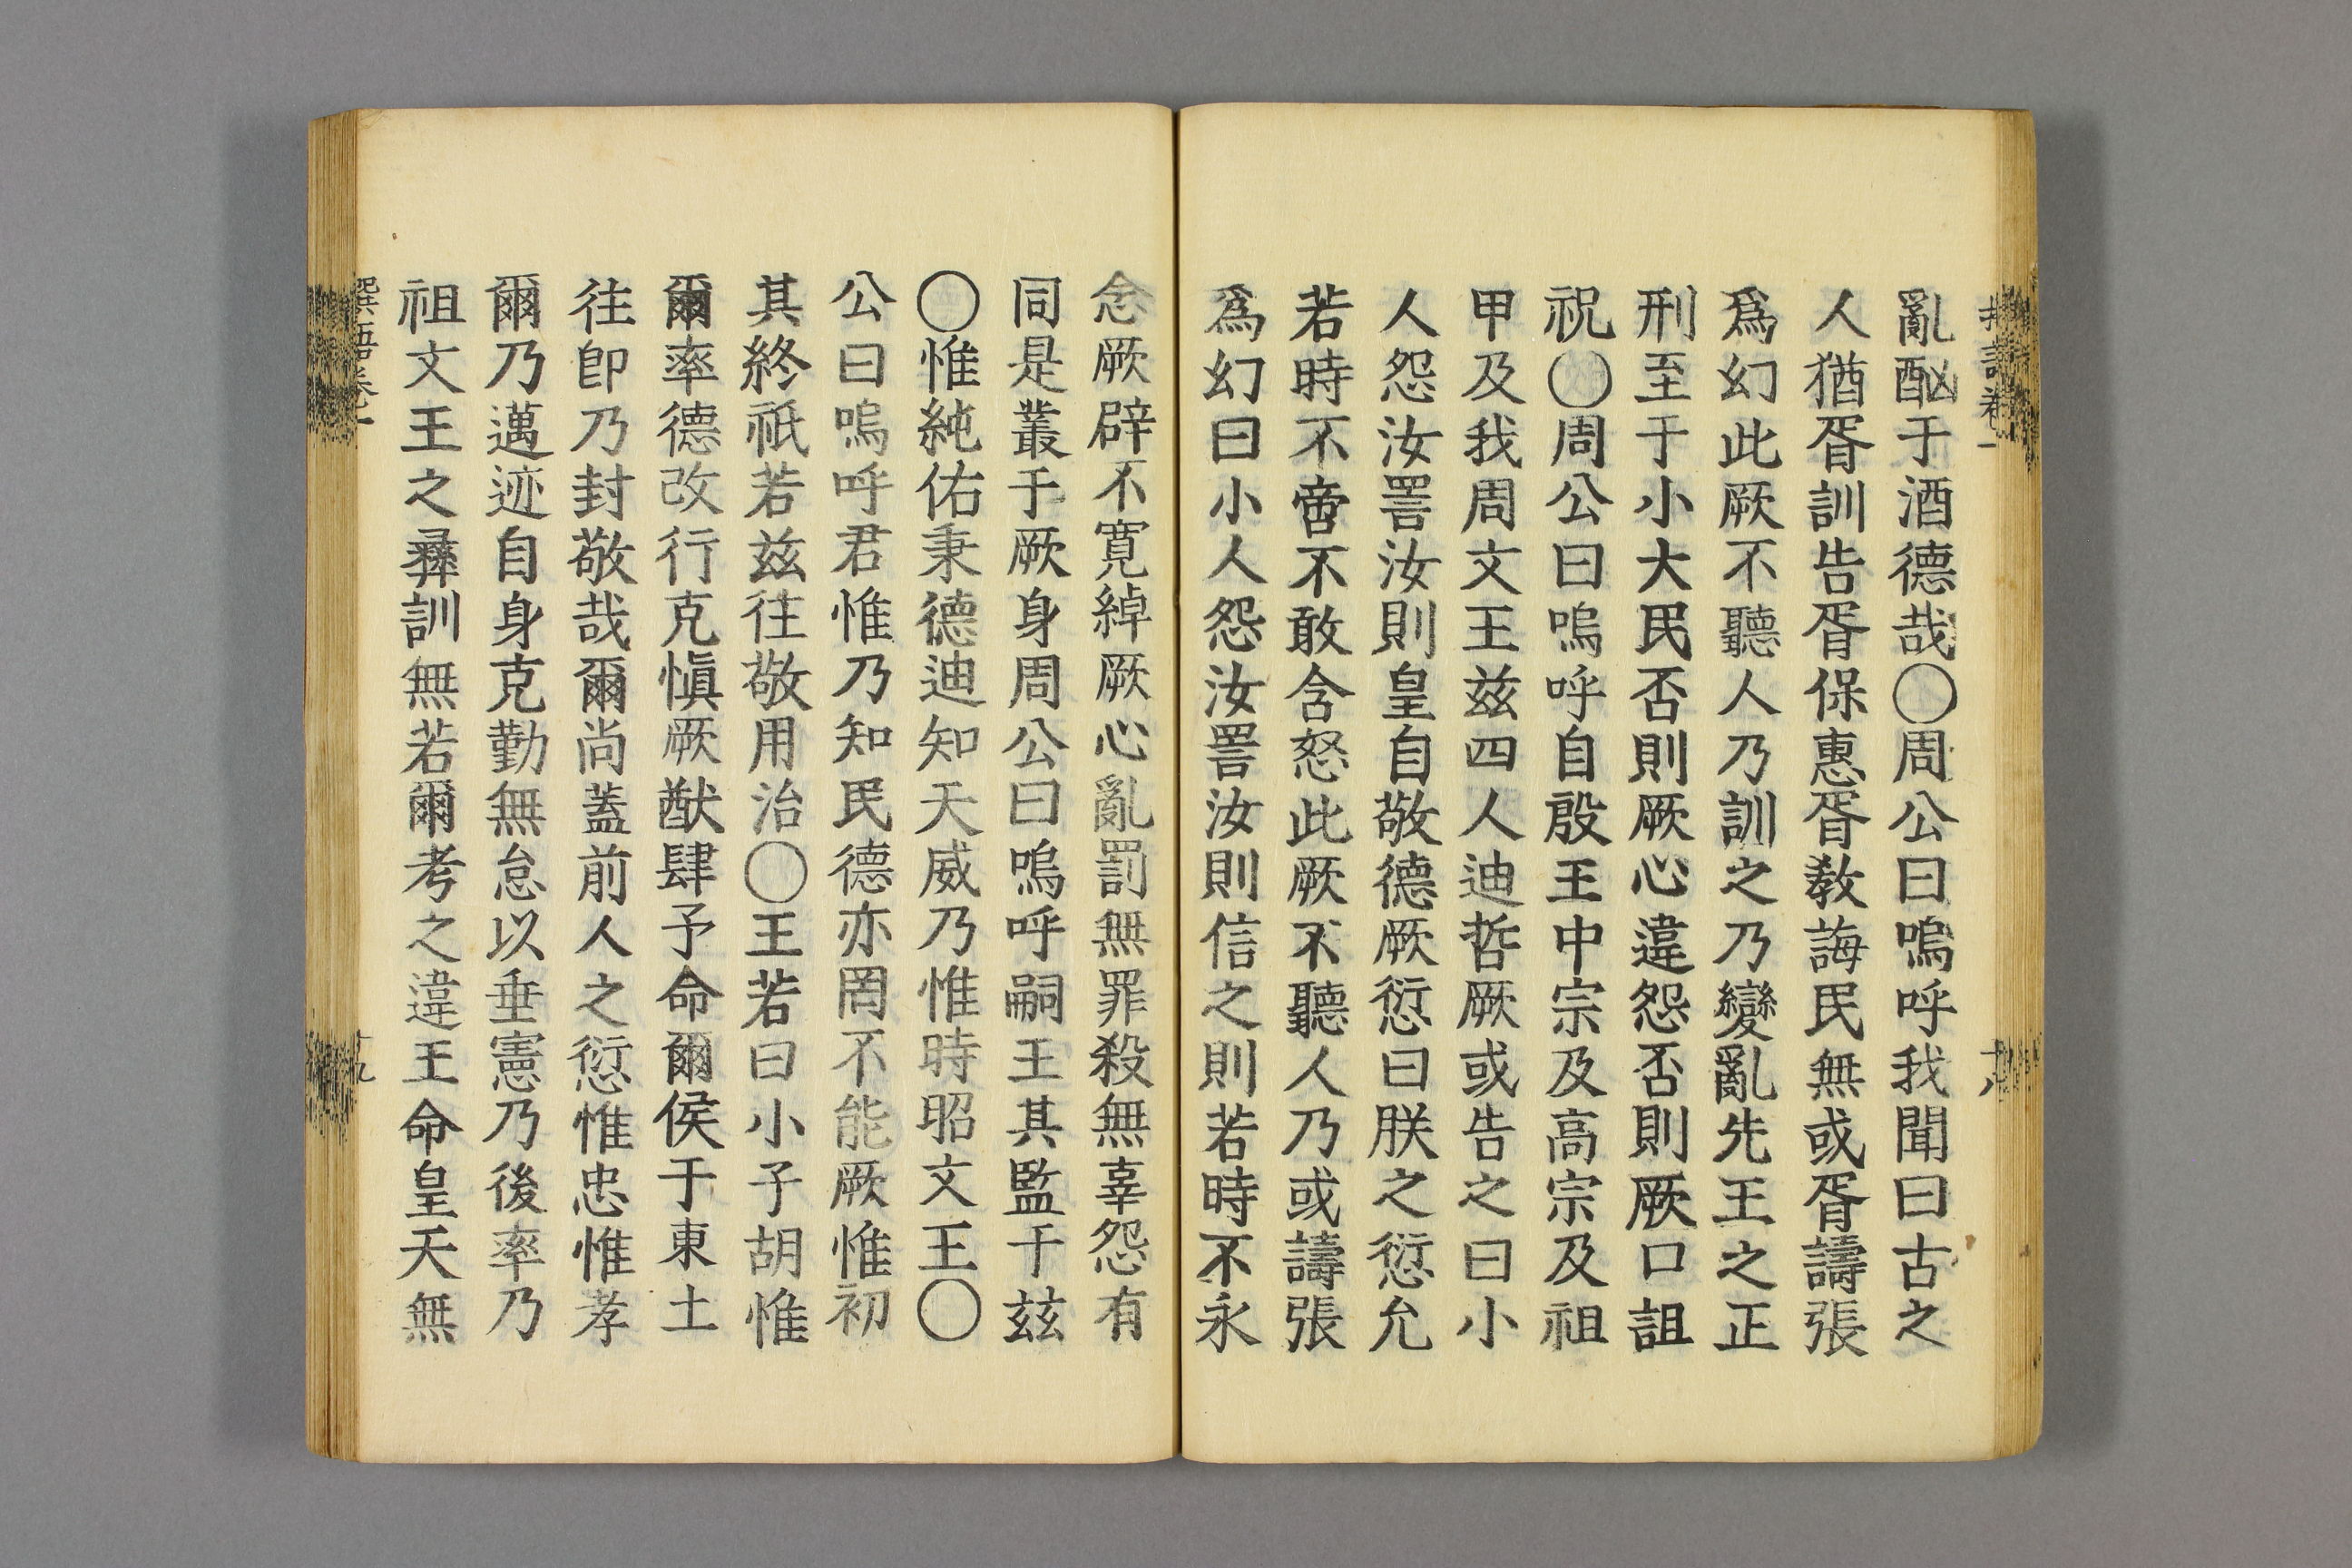 亂酗于酒德哉〇周公曰嗚呼我聞曰古之
人猶胥訓告胥保惠胥敎誨民無或胥譸張
爲幻此厥不聽人乃訓之乃變亂先王之正
刑至于小大民否則厥心違怨否則厥口詛
祝〇周公曰嗚呼自殷王中宗及高宗及祖
甲及我周文王玆四人迪哲厥或告之曰小
人怨汝詈汝則皇自敬德厥愆曰朕之愆允
若時不啻不敢含怒此厥不聽人乃或譸張
爲幻曰小人怨汝詈汝則信之則若時不永
念厥辟不寬綽厥心亂罰無罪殺無辜怨有
同是叢于厥身周公曰嗚呼嗣王其監于玆
〇惟純佑秉德迪知天威乃惟時昭文王〇
公曰嗚呼君惟乃知民德亦罔不能厥惟初
其終祇若玆往敬用治〇王若曰小子胡惟
爾率德改行克愼厥猷肆予命爾侯于東土
往卽乃封敬哉爾尚蓋前人之愆惟忠惟孝
爾乃邁迹自身克勤無怠以垂憲乃後率乃
祖文王之彝訓無若爾考之違王命皇天無
卷一
十九